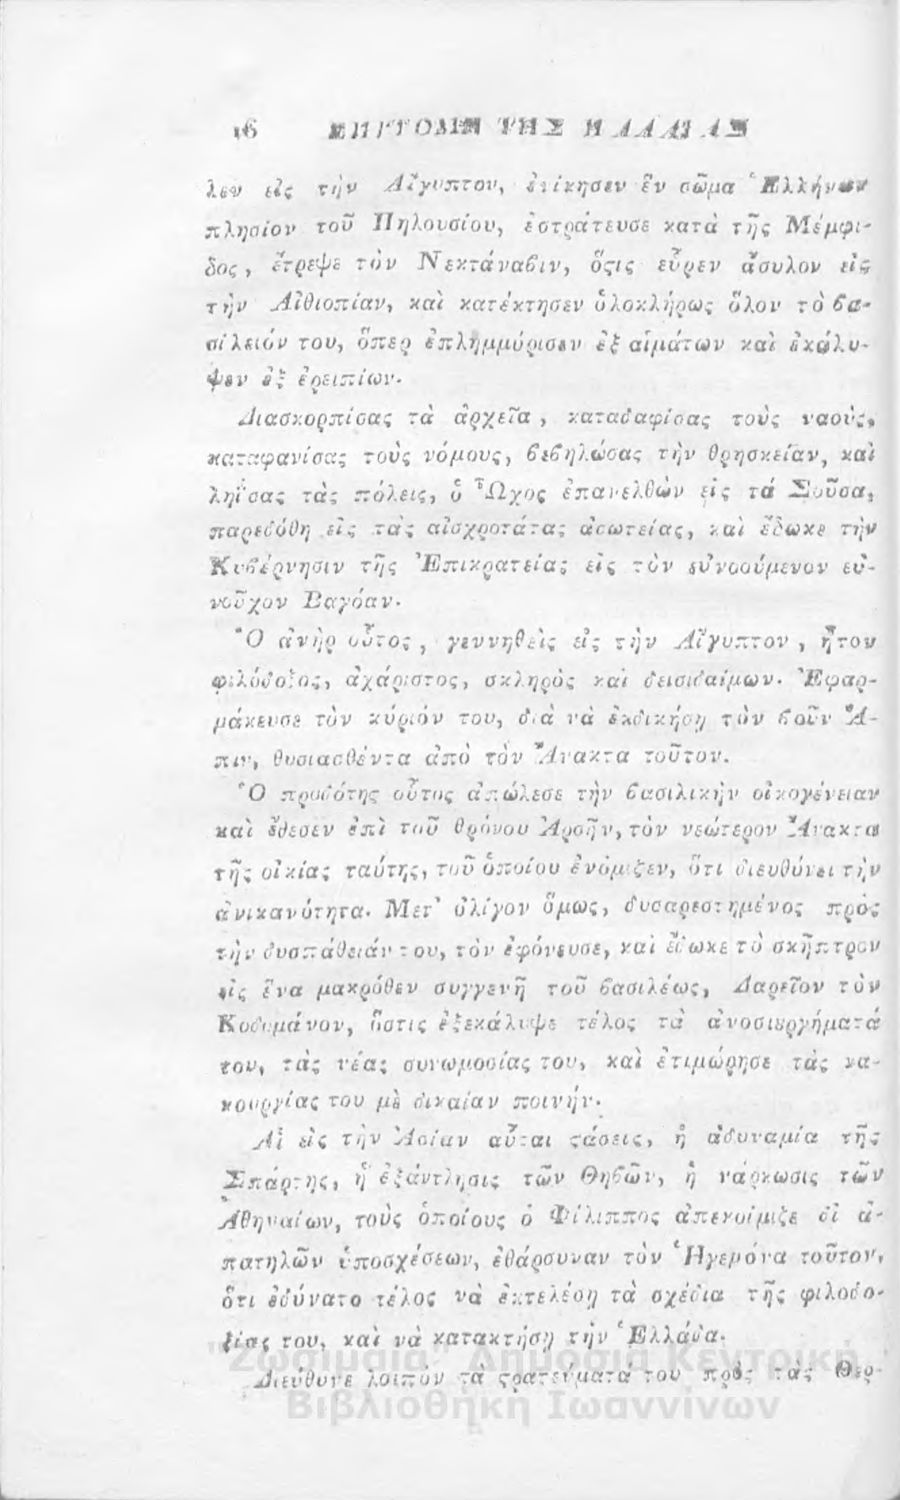 16 ΕΠΙΤΟΜΗ ΤΗΣ ΠΑΛΑΙΑΣ
λεν εἰς τὴν Αἴγυπτον, ἐνίκησεν ἓν σῶμα Ἑλλήνων
πλησίον τοῦ Πηλουσίου, ἐστράτευσε κατὰ τῆς Μέμφι-
δος, ἔτρεψε τὸν Νεκτάναβιν, ὅςις εὗρεν ἄσυλον εἰς
τὴν Αἰθιοπίαν, καὶ κατέκτησεν ὁλοκλήρως ὅλον τὸ βα-
σίλειόν του, ὅπερ ἐπλημμύρισεν ἐξ αἱμάτων καὶ ἐκάλυ-
ψεν ἐξ ἐρειπίων.
Διασκορπίσας τὰ ἀρχεῖα, καταδαφίσας τοὺς ναοὺς,
καταφανίσας τοὺς νόμους, βεβηλώσας τὴν θρησκείαν, καὶ
ληΐσας τὰς πόλεις, ὁ Ὦχος ἐπανελθὼν εἰς τὰ Σοῦσα,
παρεδόθη εἰς τὰς αἰσχροτάτας ἀσωτείας, καὶ ἔδωκε τὴν
Κυβέρνησιν τῆς Ἐπικρατείας εἰς τὸν εὐνοούμενον εὐ-
νοῦχον Βαγόαν.
Ὁ ἀνὴρ οὗτος, γεννηθεὶς εἰς τὴν Αἴγυπτον, ἦτον
φιλόδοξος, ἀχάριστος, σκληρὸς καὶ δεισιδαίμων. Ἐφαρ-
μάκευσε τὸν κύριόν του, διὰ νὰ ἐκδικήσῃ τὸν βοῦν Ἄ-
πιν, θυσιασθέντα ἀπὸ τὸν Ἄνακτα τοῦτον.
Ὁ προδότης οὗτος ἀπώλεσε τὴν βασιλικὴν οἰκογένειαν
καὶ ἔθεσεν ἐπὶ τοῦ θρόνου Ἀρσῆν, τὸν νεώτερον Ἄνακτα
τῆς οἰκίας ταύτης, τοῦ ὁποίου ἐνόμιζεν, ὅτι διευθύνει τὴν
ἀνικανότητα. Μετ' ὀλίγον ὅμως, δυσαρεστημένος πρὸς
τὴν δυσπάθειάν του, τὸν ἐφόνευσε, καὶ ἔδωκε τὸ σκῆπτρον
εἰς ἕνα μακρόθεν συγγενῆ τοῦ βασιλέως, Δαρεῖον τὸν
Κοδομάνον, ὅστις ἐξεκάλυψε τέλος τὰ ἀνοσιυργήματά
του, τὰς νέας συνωμοσίας του, καὶ ἐτιμώρησε τὰς κα-
κουργίας του μὲ δικαίαν ποινήν.
Αἱ εἰς τὴν Ἀσίαν αὗται ςάσεις, ἡ ἀδυναμία τῆς
Σπάρτης, ἡ ἐξάντλησις τῶν Θηβῶν, ἡ νάρκωσις τῶν
Ἀθηναίων, τοὺς ὁποίους ὁ Φίλιππος ἀπεκοίμιζε δι' ἀ-
πατηλῶν ὑποσχέσεων, ἐθάρσυναν τὸν Ἡγεμόνα τοῦτον,
ὅτι ἐδύνατο τέλος νὰ ἐκτελέσῃ τὰ σχέδια τῆς φιλοδο-
ξίας του, καὶ νὰ κατακτήσῃ τὴν Ἑλλάδα.
Διεύθυνε λοιπὸν τὰ ςρατεύματά του πρὸς τὰς Θερ-
"Ζωσιμαία" Δημόσια Κεντρική
Βιβλιοθήκη Ιωαννίνων